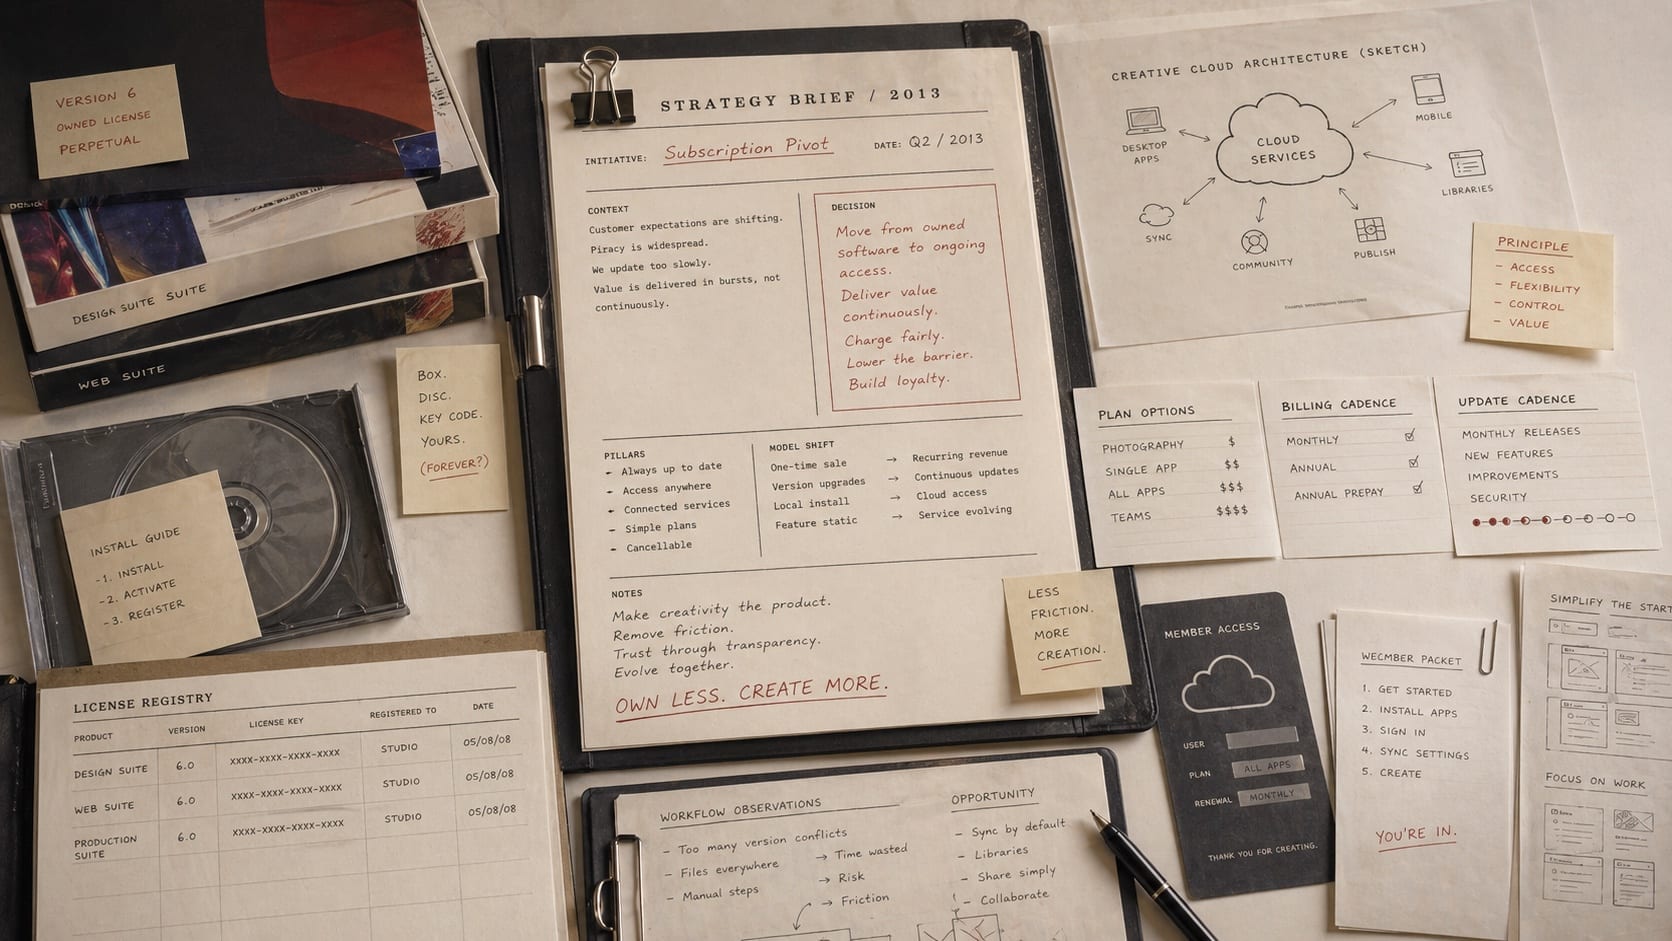 VERSION 6
OWNED LICENSE
PERPETUAL
DESIGN SUITE SUITE
WEB SUITE
BOX.
DISC.
KEY CODE.
YOURS.
(FOREVER?)
INSTALL GUIDE
-1. INSTALL
-2. ACTIVATE
-3. REGISTER
LICENSE REGISTRY
PRODUCT VERSION LICENSE KEY REGISTERED TO DATE
DESIGN SUITE 6.0 XXXX-XXXX-XXXX-XXXX STUDIO 05/08/08
WEB SUITE 6.0 XXXX-XXXX-XXXX-XXXX STUDIO 05/08/08
PRODUCTION SUITE 6.0 XXXX-XXXX-XXXX-XXXX STUDIO 05/08/08
STRATEGY BRIEF / 2013
INITIATIVE: Subscription Pivot DATE: Q2 / 2013
CONTEXT
Customer expectations are shifting.
Piracy is widespread.
We update too slowly.
Value is delivered in bursts, not
continuously.
DECISION
Move from owned
software to ongoing
access.
Deliver value
continuously.
Charge fairly.
Lower the barrier.
Build loyalty.
PILLARS
- Always up to date
- Access anywhere
- Connected services
- Simple plans
- Cancellable
MODEL SHIFT
One-time sale → Recurring revenue
Version upgrades → Continuous updates
Local install → Cloud access
Feature static → Service evolving
NOTES
Make creativity the product.
Remove friction.
Trust through transparency.
Evolve together.
OWN LESS. CREATE MORE.
LESS
FRICTION.
MORE
CREATION.
WORKFLOW OBSERVATIONS
- Too many version conflicts
- Files everywhere → Time wasted
- Manual steps → Risk
→ Friction
OPPORTUNITY
- Sync by default
- Libraries
- Share simply
- Collaborate
CREATIVE CLOUD ARCHITECTURE (SKETCH)
CLOUD
SERVICES
DESKTOP
APPS
MOBILE
LIBRARIES
SYNC
COMMUNITY
PUBLISH
PRINCIPLE
- ACCESS
- FLEXIBILITY
- CONTROL
- VALUE
PLAN OPTIONS
PHOTOGRAPHY $
SINGLE APP $$
ALL APPS $$$
TEAMS $$$$
BILLING CADENCE
MONTHLY
ANNUAL
ANNUAL PREPAY
UPDATE CADENCE
MONTHLY RELEASES
NEW FEATURES
IMPROVEMENTS
SECURITY
MEMBER ACCESS
USER
PLAN ALL APPS
RENEWAL MONTHLY
THANK YOU FOR CREATING.
WECMBER PACKET
1. GET STARTED
2. INSTALL APPS
3. SIGN IN
4. SYNC SETTINGS
5. CREATE
YOU'RE IN.
SIMPLIFY THE START
FOCUS ON WORK